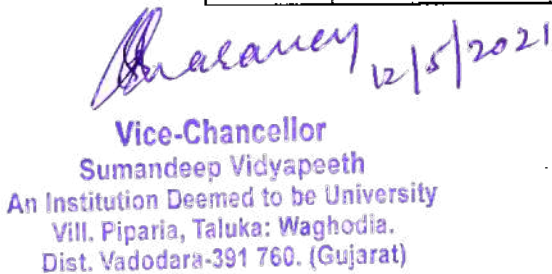 12/5/2021
Vice-Chancellor
Sumandeep Vidyapeeth
An Institution Deemed to be University
Vill. Piparia, Taluka: Waghodia.
Dist. Vadodara-391 760. (Gujarat)